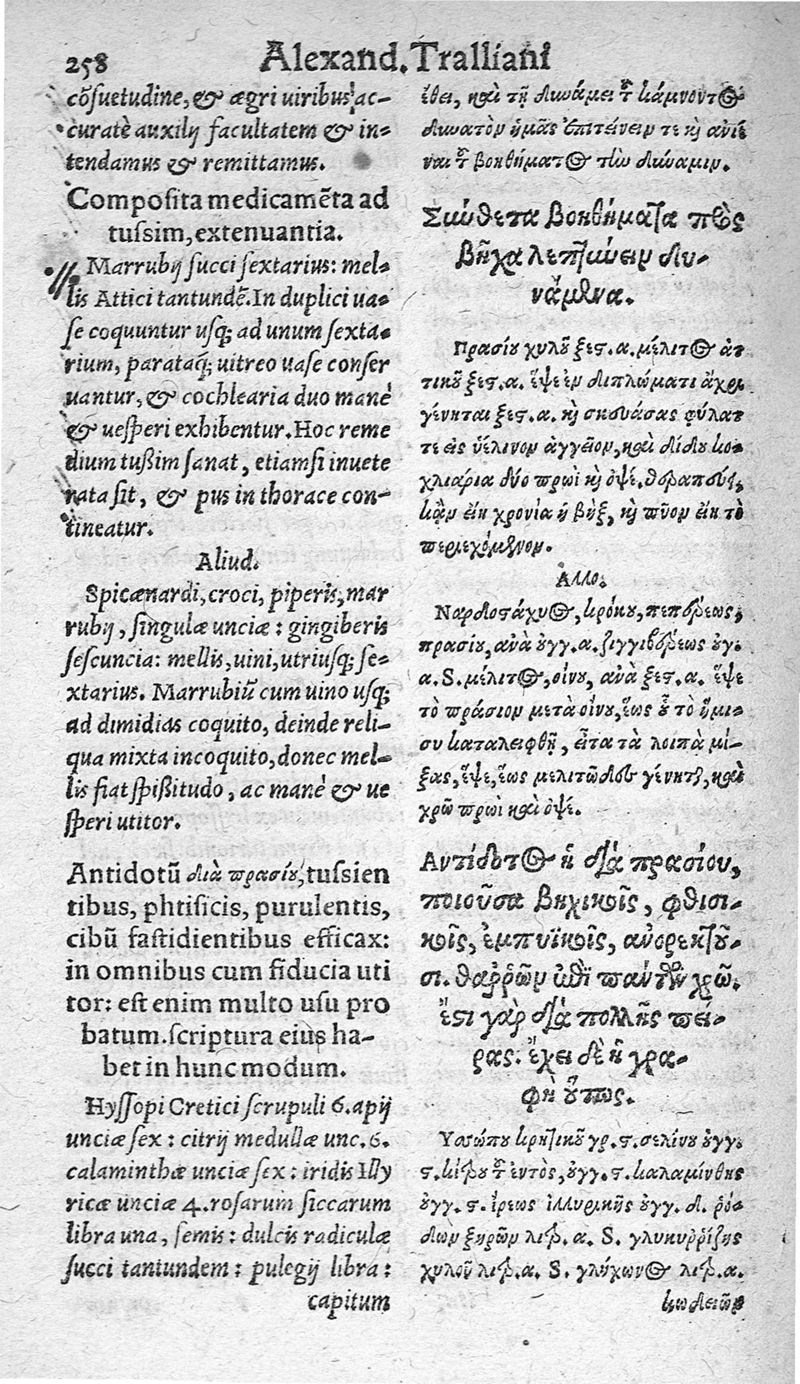 258
Alexand. Tralliani
cõsuetudine, & ægri uiribus ac-
curatè auxilij facultatem & in-
tendamus & remittamus.
Composita medicamẽta ad
tussim, extenuantia.
Marrubij succi sextarius: mel-
lis Attici tantundẽ. In duplici ua-
se coquuntur usq; ad unum sexta-
rium, parataq́; uitreo uase conser
uantur, & cochlearia duo manè
& uesperi exhibentur. Hoc reme
dium tußim sanat, etiamsi inuete
rata sit, & pus in thorace con-
tineatur.
Aliud.
Spicænardi, croci, piperis, mar
rubij, singulæ unciæ: gingiberis
sescuncia: mellis, uini, utriusq; se-
xtarius. Marrubiũ cum uino usq;
ad dimidias coquito, deinde reli-
qua mixta incoquito, donec mel-
lis fiat spißitudo, ac manè & ue
speri utitor.
Antidotũ διὰ πρασίου, tussien
tibus, phtisicis, purulentis,
cibũ fastidientibus efficax:
in omnibus cum fiducia uti
tor: est enim multo usu pro
batum. scriptura eius ha-
bet in hunc modum.
Hyssopi Cretici scrupuli 6. apij
unciæ sex: citrij medullæ unc. 6.
calaminthæ unciæ sex: iridis Illy
ricæ unciæ 4. rosarum siccarum
libra una, semis: dulcis radiculæ
succi tantundem: pulegij libra:
capitum
ἔθει, καὶ τῇ δυνάμει τοῦ κάμνοντος
δυνατὸν ἡμᾶς ἐπιτείνειν τε καὶ ἀνιέ
ναι τοῦ βοηθήματος τὴν δύναμιν.
Σύνθετα βοηθήματα πρὸς
βῆχα λεπτύνειν δυ-
νάμενα.
Πρασίου χυλοῦ ξες. α. μέλιτος ἀτ
τικοῦ ξες. α. ἕψε ἐν διπλώματι ἄχρι
γένηται ξες. α. καὶ σκευάσας φύλατ
τε εἰς ὑέλινον ἀγγεῖον, καὶ δίδου κο-
χλιάρια δύο πρωὶ καὶ ὀψέ. θεραπεύει,
κἂν εἴη χρονία ἡ βὴξ, καὶ πῦον εἴη τὸ
περιεχόμενον.
Αλλο.
Ναρδοστάχυος, κρόκου, πεπέρεως,
πρασίου, ἀνὰ ουγγ. α. ζιγγιβέρεως ουγ.
α. S. μέλιτος, οἴνου, ἀνὰ ξες. α. ἕψε
τὸ πράσιον μετὰ οἴνου, ἕως οὗ τὸ ἥμι-
συ καταλειφθῇ, εἶτα τὰ λοιπὰ μί-
ξας, ἕψε, ἕως μελιτῶδες γένηται, καὶ
χρῶ πρωὶ καὶ ὀψέ.
Αντίδοτος ἡ διὰ πρασίου,
ποιοῦσα βηχικοῖς, φθισι-
κοῖς, ἐμπυϊκοῖς, ἀνορεκτοῦ-
σι. θαῤῥῶν ἐπὶ πάντων χρῶ.
ἔστι γὰρ διὰ πολλῆς πεί-
ρας. ἔχει δὲ ἡ γρα-
φὴ οὕτως.
Υσσώπου κρητικοῦ γρ. ϛ. σελίνου ουγγ.
ϛ. κίτρου τοῦ ἐντὸς, ουγγ. ϛ. καλαμίνθης
ουγγ. ϛ. ἴρεως ἰλλυρικῆς ουγγ. δ. ῥό-
δων ξηρῶν λιτρ. α. S. γλυκυῤῥίζης
χυλοῦ λιτρ. α. S. γλήχωνος λιτρ. α.
κωδειῶν